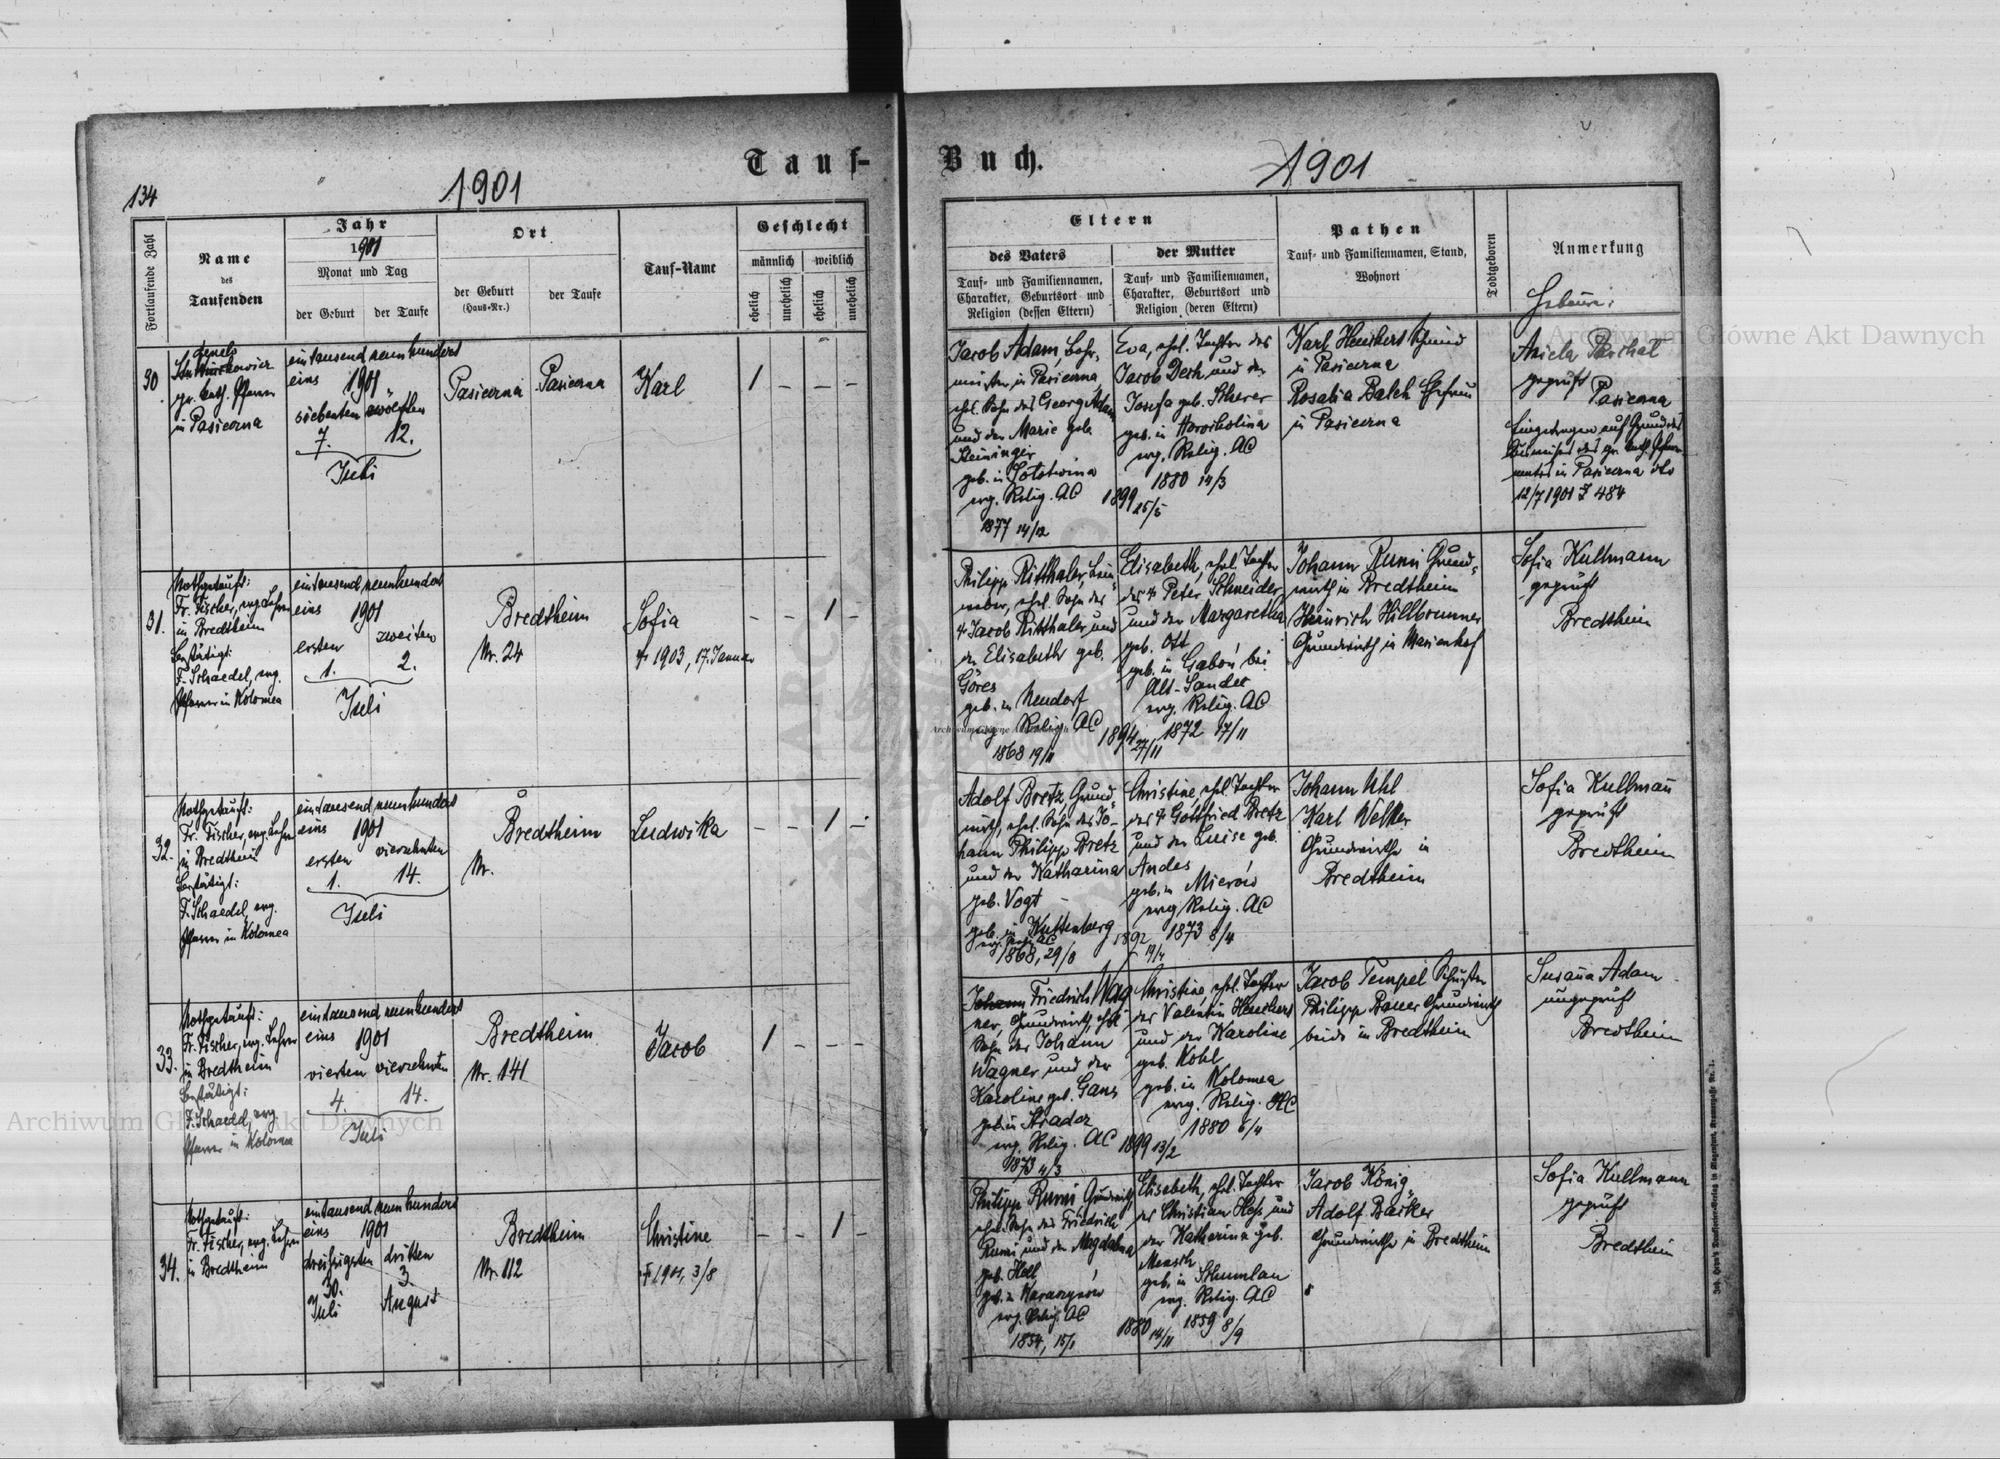 Tauf-
Buch.
134
1901
1901
Fortlaufende Zahl
Name
des
Taufenden
Jahr
1901
Monat und Tag
der Geburt
der Taufe
Ort
der Geburt
(Haus-Nr.)
der Taufe
Tauf-Name
Geschlecht
männlich
weiblich
ehelich
unehelich
ehelich
unehelich
Eltern
des Vaters
Tauf- und Familiennamen,
Charakter, Geburtsort und
Religion (dessen Eltern)
der Mutter
Tauf- und Familiennamen,
Charakter, Geburtsort und
Religion (deren Eltern)
Pathen
Tauf- und Familiennamen, Stand,
Wohnort
Todtgeboren
Anmerkung
30
gr. kath. Pfarrer
in Pasieczna
eintausend neunhundert
eins 1901
siebenten zwölften
7. 12.
Juli
Pasieczna
Pasieczna
Karl
1 – – –
Jacob Adam
in Pasieczna,
ehel. Sohn des Georg Adam
und der Marie geb.
Steininger
geb. in Solotwina
evg. Relig. AC
1877 14/12
Eva, ehel. Tochter des
Jacob Desh und der
Josefa geb. Scherer
geb. in Horocholina
evg. Relig. AC
1880 14/3
1899 25/5
Karl
in Pasieczna
Rosalia Balch Ehefrau
in Pasieczna
Aniela Paschal
geprüft
Pasieczna
Eingetragen auf Grund des
in Pasieczna dto
12/7 1901 Z 484
31.
Nothgetauft:
Fr. Fischer, evg. Lehrer
in Bredtheim
Bestätigt:
F. Schaedel, evg.
Pfarrer in Kolomea
eintausend neunhundert
eins 1901
ersten zweiten
1. 2.
Juli
Bredtheim
Nr. 24
Sofia
† 1903, 17. Januar
– – 1 –
Philipp Ritthaler, Lein-
weber, ehel. Sohn des
† Jacob Ritthaler und
der Elisabeth geb.
Göres
geb. in Neudorf
evg. Relig. AC
1868 19/11
Elisabeth, ehel. Tochter
des † Peter Schneider
und der Margaretha
geb. Ott
geb. in Gaboń bei
Alt-Sandec
evg. Relig. AC
1872 17/11
1894 27/11
Johann Rumi Grund-
wirth in Bredtheim
Heinrich Hillbrunner
Grundwirth in Marienhof
Sofia Kullmann
geprüft
Bredtheim
32.
Nothgetauft:
Fr. Fischer, evg. Lehrer
in Bredtheim
Bestätigt:
F. Schaedel, evg.
Pfarrer in Kolomea
eintausend neunhundert
eins 1901
ersten vierzehnten
1. 14.
Juli
Bredtheim
Nr.
Ludwika
– – 1 –
Adolf Bretz, Grund-
wirth, ehel. Sohn des Jo-
hann Philipp Bretz
und der Katharina
geb. Vogt
geb. in Kuttenberg
evg. Relig. AC
1868, 29/8
Christine, ehel. Tochter
des † Gottfried Bretz
und der Luise geb.
Andes
geb. in Mierów
evg. Relig. AC
1873 8/4
1892
Johann Uhl
Karl Welker
Grundwirthe in
Bredtheim
Sofia Kullmann̄
geprüft
Bredtheim
33.
Nothgetauft:
Fr. Fischer, evg. Lehrer
in Bredtheim
Bestätigt:
F. Schaedel, evg.
Pfarrer in Kolomea
eintausend neunhundert
eins 1901
vierten vierzehnten
4. 14.
Juli
Bredtheim
Nr. 141
Jacob
1 – – –
Johann Friedrich Wag-
ner, Grundwirth, ehel.
Sohn des Johann
Wagner und der
Karoline geb. Gans
geb. in Stradcz
evg. Relig. AC
1873 4/3
Christine, ehel. Tochter
des Valentin Henchert
und der Karoline
geb. Kohl
geb. in Kolomea
evg. Relig. HC
1880 6/4
1899 13/2
Jacob Tempel Schuster
Philipp Bauer Grundwirth
beide in Bredtheim
Susana Adam
ungeprüft
Bredtheim
34.
Nothgetauft:
Fr. Fischer, evg. Lehrer
in Bredtheim
eintausend neunhundert
eins 1901
dreißigsten dritten
30. 3.
Juli August
Bredtheim
Nr. 112
Christine
† 1901, 3/8
– – 1 –
Philipp Rumi, Grundwirth
ehel. Sohn des Friedrich
Rumi und der Magdalena
geb. Holl
evg. Relig. AC
1854, 15/1
Elisabeth, ehel. Tochter
des Christian Hess und
der Katharina geb.
Mensch
geb. in Schumlau
evg. Relig. AC
1859 8/9
1880 14/11
Jacob König
Adolf Bäcker
Grundwirthe in Bredtheim
Sofia Kullmann
geprüft
Bredtheim
Archiwum Główne Akt Dawnych
Archiwum Główne Akt Dawnych
Archiwum Główne Akt Dawnych